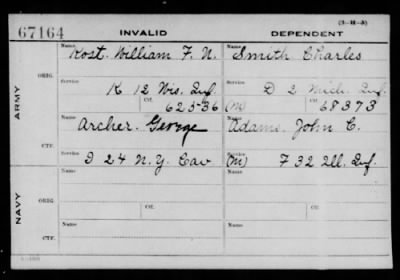 (3-H-3)
67164 INVALID DEPENDENT
Name Name
Kost. William F. N. Smith Charles
ORIG. Service Service
K 12 Wis. Inf. D 2 Mich. Inf.
Ctf. 62536 (M) Ctf. 68373
ARMY
Name Name
Archer. George Adams. John C.
CTF. Service Service
I 24 N.Y. Cav (M) F 32 Ill. Inf.
Name Name
NAVY
ORIG. Ctf. Ctf.
Name Name
CTF.